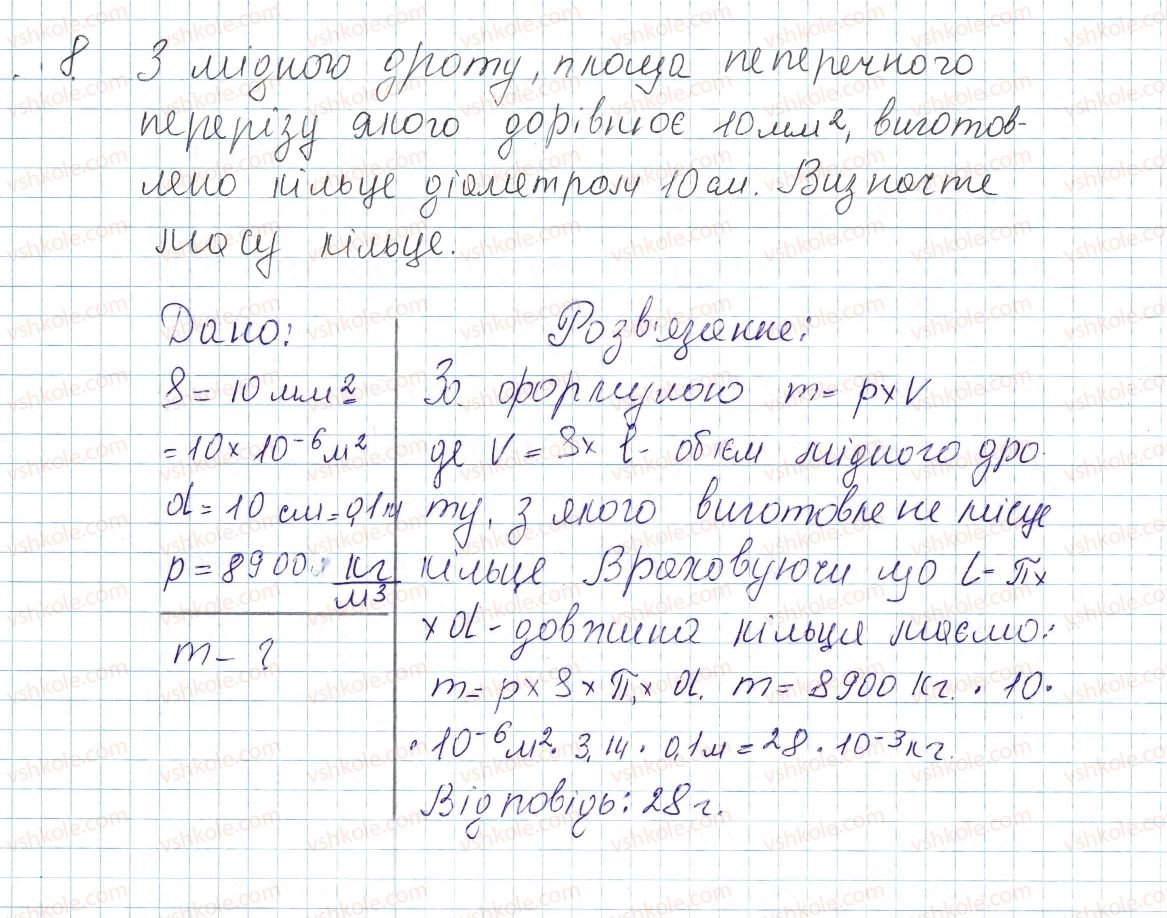 8. З мідного дроту, площа пеперечного
перерізу якого дорівнює 10 мм², виготов-
лено кільце діаметром 10 см. Визначте
масу кільце.
Дано:
S = 10 мм² =
= 10 × 10⁻⁶ м²
d = 10 см = 0,1 м
p = 8900 кг/м³
m - ?
Розв'язання:
За формулою m = p × V
де V = S × l - об'єм мідного дро-
ту, з якого виготовлене місце
кільце Враховуючи що l - π ×
× d - довжина кільця маємо:
m = p × S × π × d. m = 8900 кг. · 10 ·
· 10⁻⁶ м² · 3,14 · 0,1 м = 28 · 10⁻³ кг.
Відповідь: 28 г.
vshkole.com